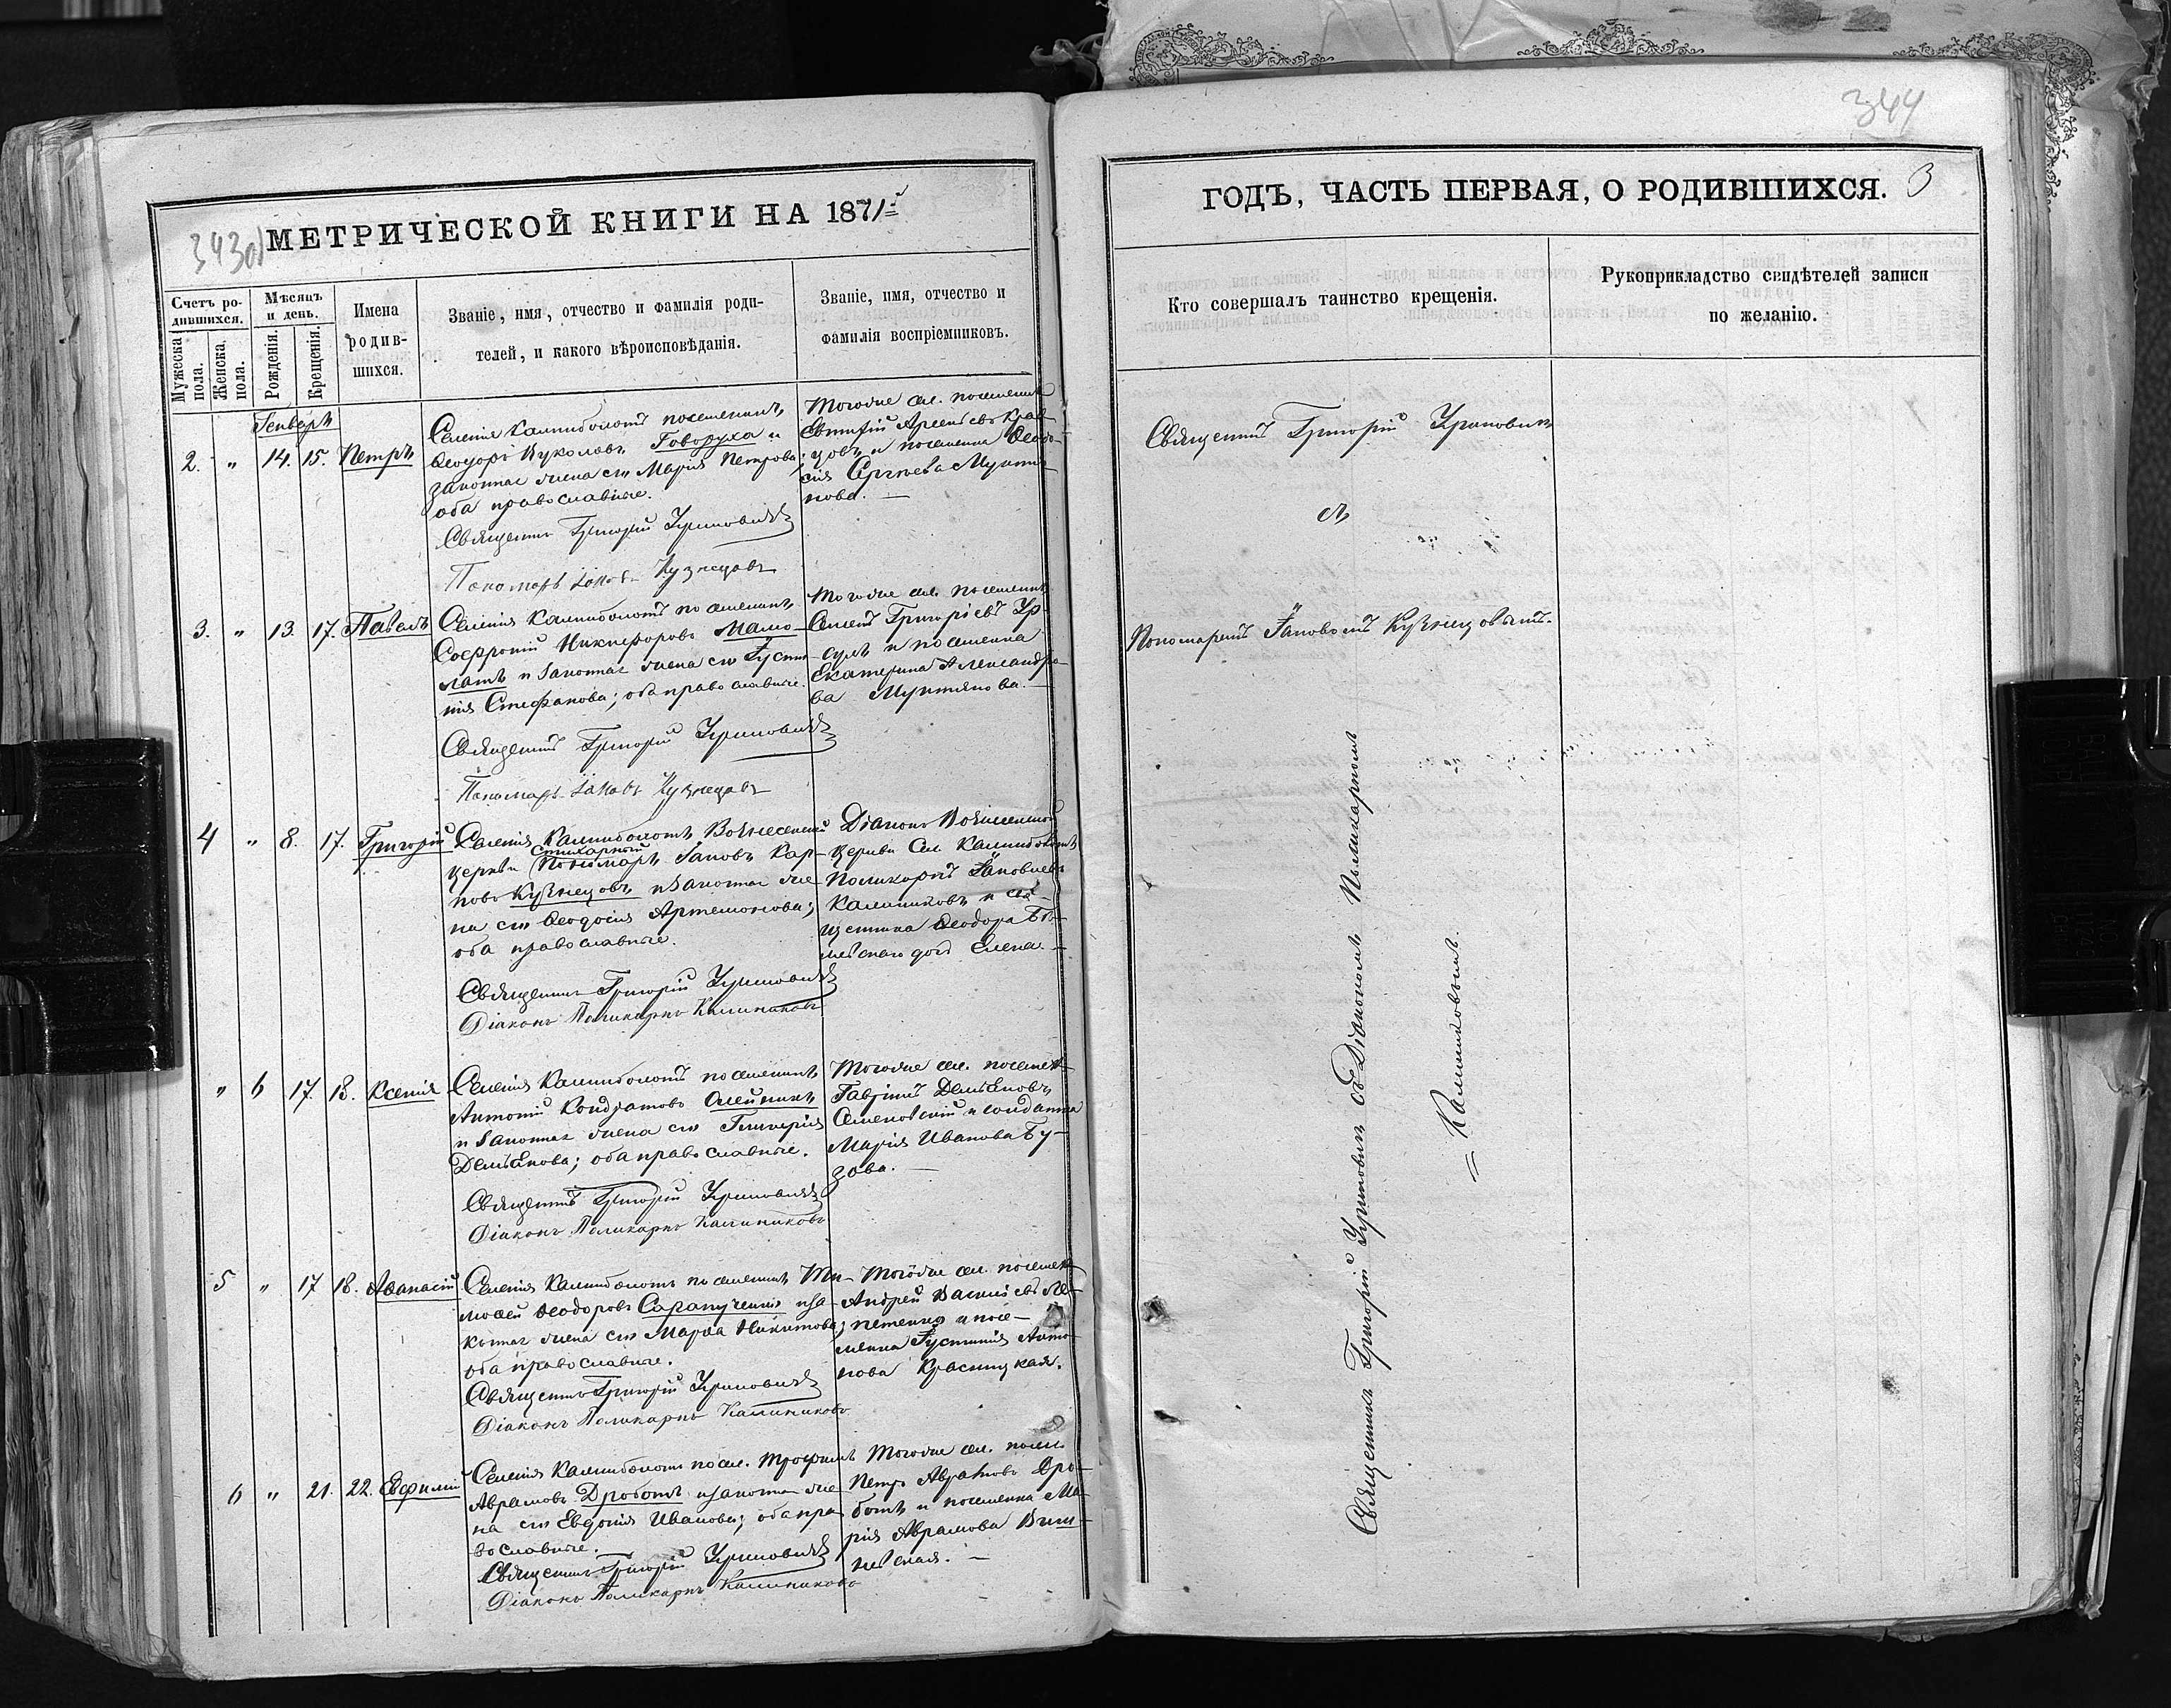 343об
МЕТРИЧЕСКОЙ КНИГИ НА 1871й
Счетъ ро-
дившихся.
Мужеска пола.
Женска пола.
Мѣсяцъ
и день.
Рожденія.
Крещенія.
Имена
родив-
шихся.
Званіе, имя, отчество и фамилія роди-
телей, и какого вѣроисповѣданія.
Званіе, имя, отчество и
фамилія воспріемниковъ.
Генварь
2. " 14. 15. Петръ
Селенія Калниболотъ поселянинъ
Феодоръ Луколовъ Говоруха и
законная жена его Марія Петрова;
оба православные.
Священникъ Григорій Уриновичъ
Пономарь Іаковъ Кузнецовъ
Тогоже сел. поселянинъ
Евтихій Арсеньевъ Крав-
цовъ и поселянка Феодо-
сія Сергѣева Мунтя-
нова. —
3. " 13. 17. Павелъ
Селенія Калниболотъ поселянинъ
Софроній Никифоровъ Мало-
латъ и законная жена его Іусти-
нія Стефанова; оба православные.
Священникъ Григорій Уриновичъ
Пономарь Іаковъ Кузнецовъ
Тогоже сел. поселянинъ
Семенъ Григоріевъ Ур-
сулъ и поселянка
Екатерина Александро-
ва Мунтянова. —
4 " 8. 17. Григорій
Селенія Калниболотъ Вознесенской
церкви стихарный Пономарь Іаковъ Кар-
повъ Кузнецовъ и законная же-
на его Феодосія Артемонова;
оба православные.
Священникъ Григорій Уриновичъ
Діаконъ Поликарпъ Калиниковъ
Діаконъ Вознесенской
церкви Сел. Калниболотъ
Поликарпъ Іаковлевъ
Калиниковъ и свя-
щенника Феодора
дочь Елена. —
" 6 17. 18. Ксенія
Селенія Калниболотъ поселянинъ
Антоній Кондратовъ Олейникъ
и законная жена его Гликерія
Демьянова; оба православные.
Священникъ Григорій Уриновичъ
Діаконъ Поликарпъ Калиниковъ
Тогоже сел. поселян.
Гавріилъ Демьяновъ
Семеновскій и солдатка
Марія Иванова Бу-
зова. —
5 " 17 18. Афанасій
Селенія Калниболотъ поселянинъ Ти-
мофей Феодоровъ Сарапученко и за-
конная жена его Марфа Никитова;
оба православные.
Священникъ Григорій Уриновичъ
Діаконъ Поликарпъ Калиниковъ
Тогоже сел. поселян.
Андрей Васильевъ Ле-
петенко и посе-
лянка Іустинія Анто-
нова Красицкая.
6 " 21. 22. Евфимій
Селенія Калниболотъ посел. Трофимъ
Аврамовъ Дроботъ и законная же-
на его Евдокія Иванова; оба пра-
вославные.
Священникъ Григорій Уриновичъ
Діаконъ Поликарпъ Калиниковъ
Тогоже сел. посел.
Петръ Аврамовъ Дро-
ботъ и поселянка Ма-
рія Аврамова Виш-
невская. —
344
ГОДЪ, ЧАСТЬ ПЕРВАЯ, О РОДИВШИХСЯ. 3
Кто совершалъ таинство крещенія.
Рукоприкладство свидѣтелей записи
по желанію.
Священникъ Григорій Уриновичъ
съ
Пономаремъ Іаковомъ Кузнецовымъ.
Священникъ Григорій Уриновичъ съ Діакономъ Поликарпомъ
= Калиниковымъ.